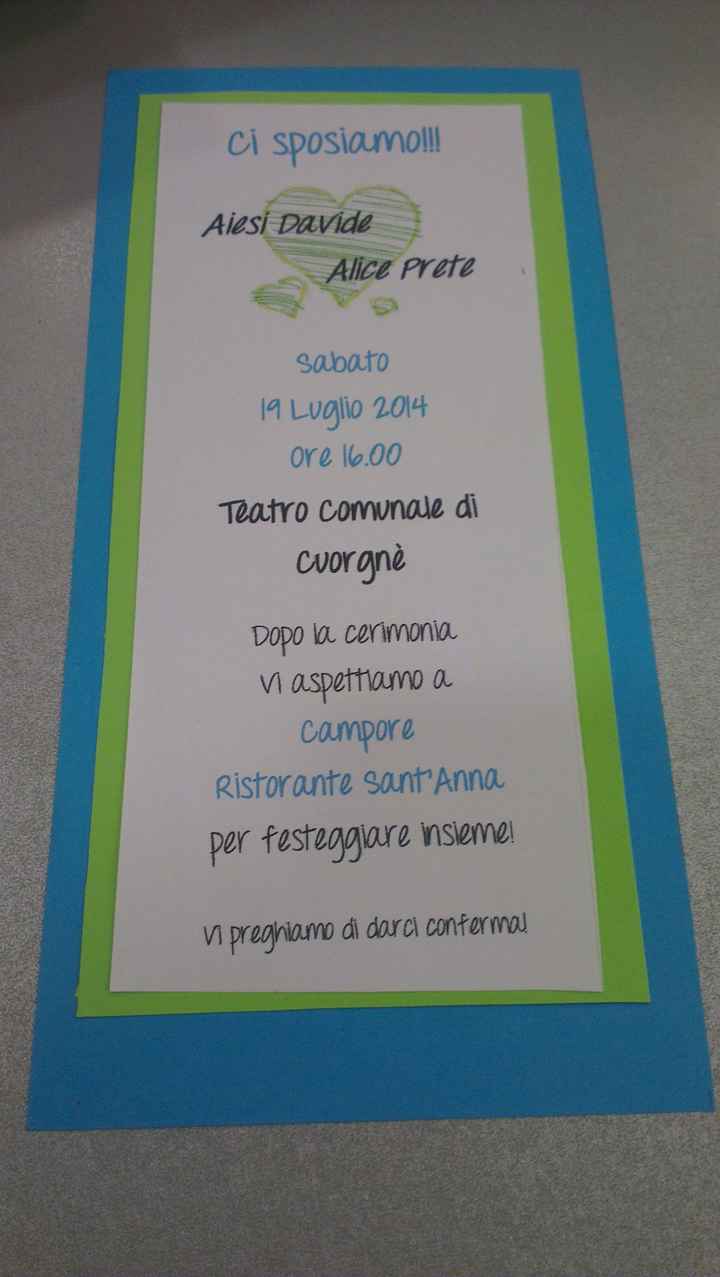 Ci sposiamo!!!
Aiesi Davide
Alice Prete
Sabato
19 Luglio 2014
Ore 16.00
Teatro Comunale di
Cuorgnè
Dopo la cerimonia
vi aspettiamo a
Campore
Ristorante Sant'Anna
per festeggiare insieme!
Vi preghiamo di darci conferma!